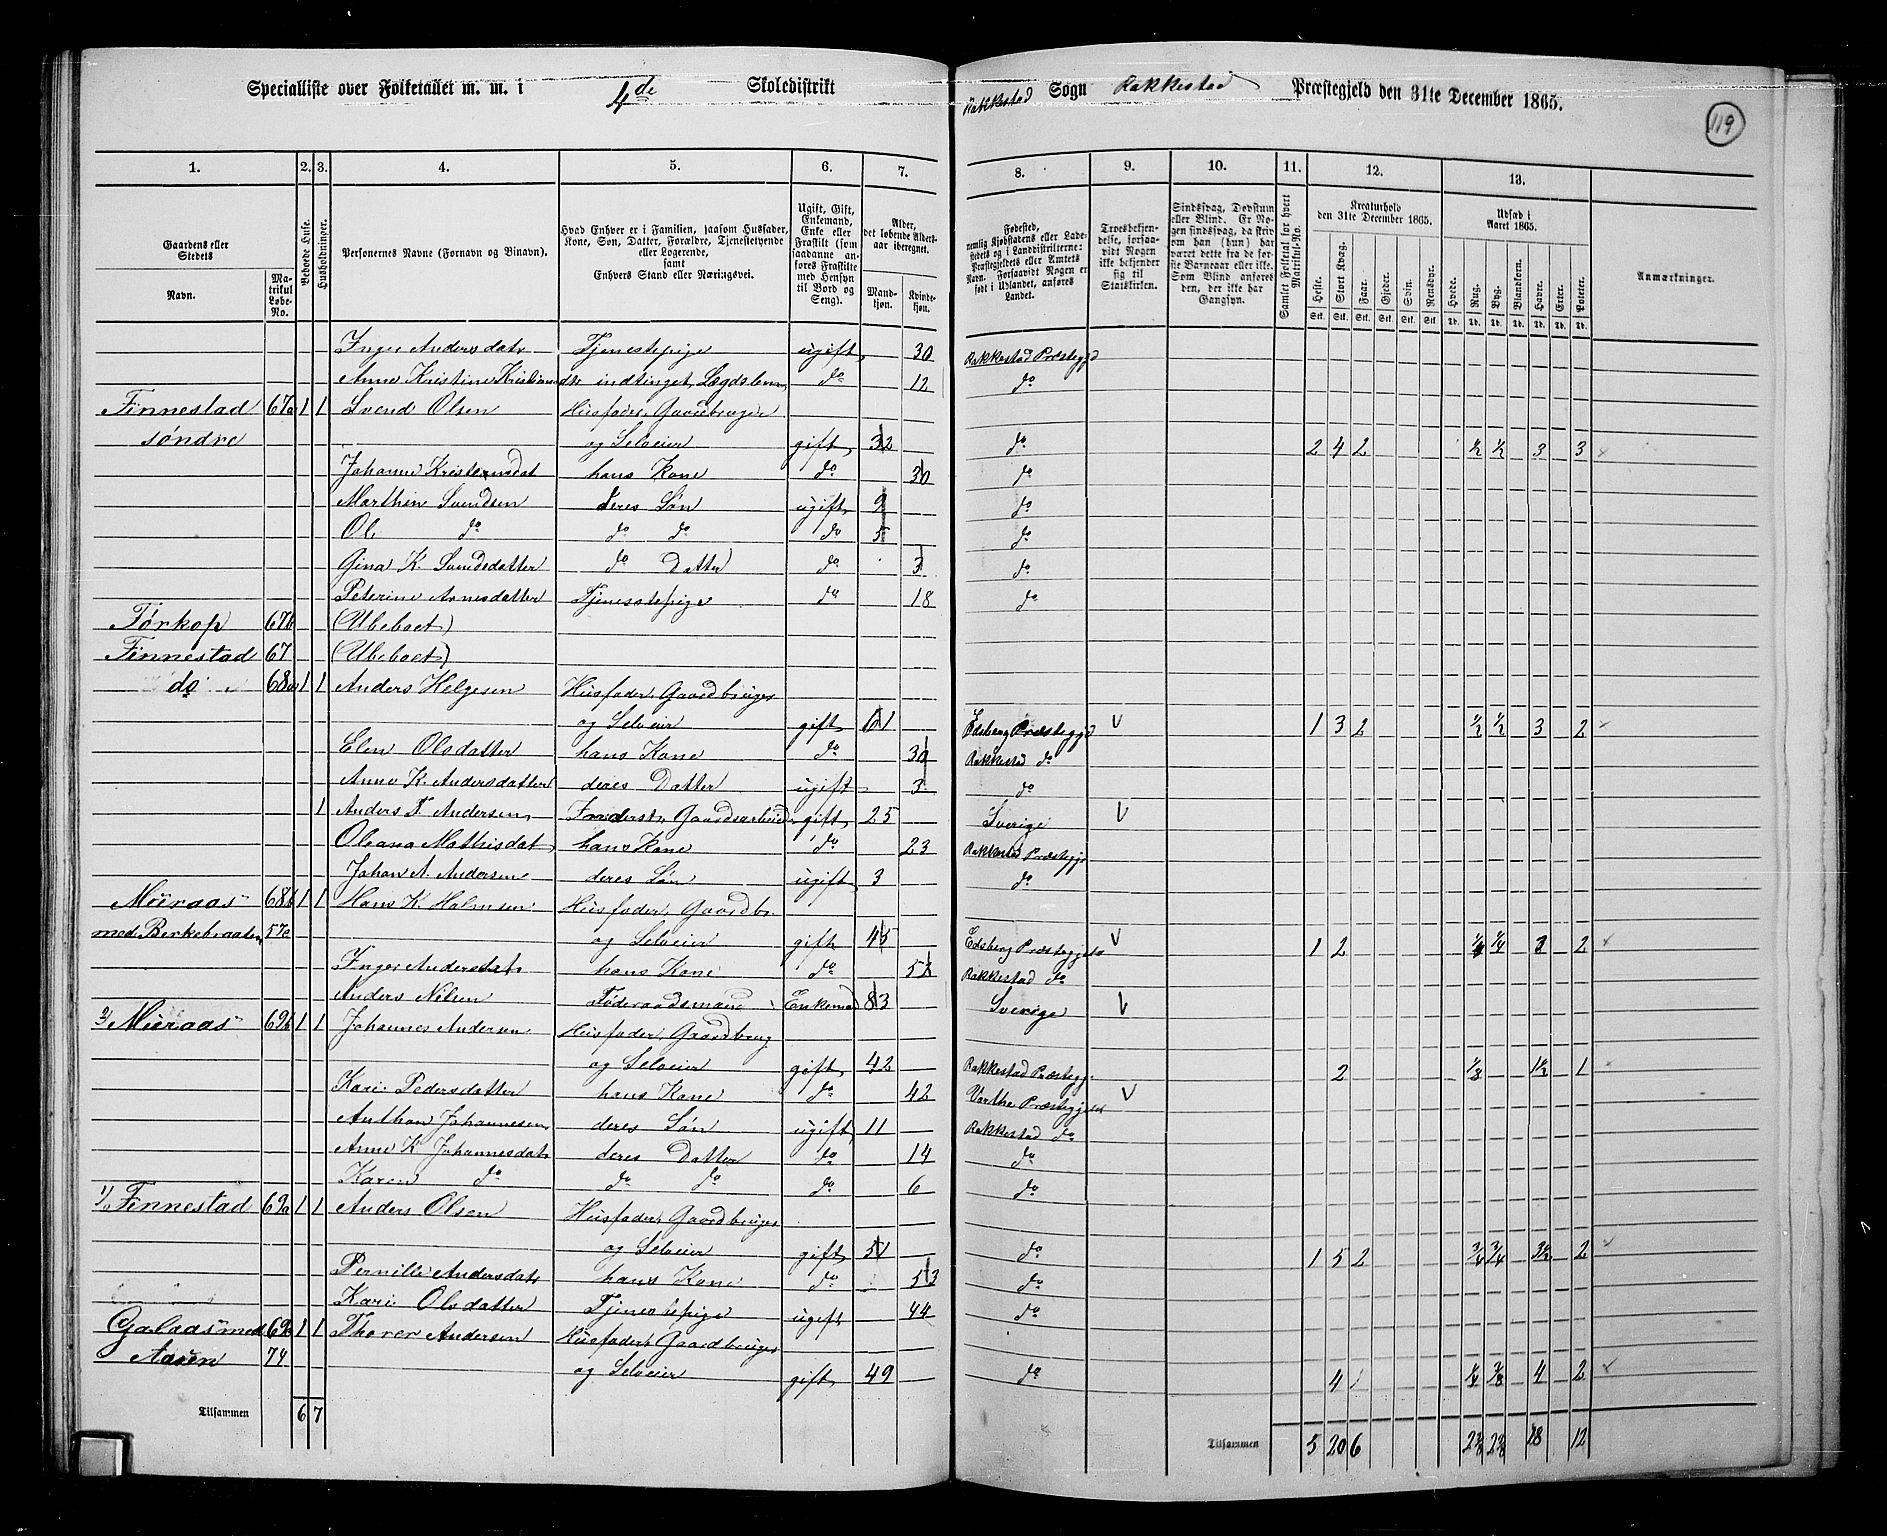 Specialliste over Folketallet m. m. i 4de Skoledistrikt Rakkestad Sogn Rakkestad Præstegjeld den 31te December 1865.
119
1. 2. 3. 4. 5. 6. 7. 8. 9. 10. 11. 12. 13.
Gaardens eller Stedets Navn. Matrikul Løbe-No.
Beboede Huse.
Husholdninger.
Personernes Navne (Fornavn og Binavn).
Hvad Enhver er i Familien, saasom Husfader, Kone, Søn, Datter, Forældre, Tjenestetyende eller Logerende, samt Enhvers Stand eller Næringsvei.
Ugift, Gift, Enkemand, Enke eller Fraskilt (som saadanne anføres Fraskilte med Hensyn til Bord og Seng).
Alder, det løbende Aldersaar iberegnet. Mandkjøn. Kvindekjøn.
Fødested, nemlig Kjøbstadens eller Ladestedets og i Landdistrikterne: Præstegjeldets eller Amtets Navn. Forsaavidt Nogen er født i Udlandet, anføres Landet.
Troesbekjendelse, forsaavidt Nogen ikke bekjender sig til Statskirken.
Sindssvag, Døvstum eller Blind. Er Nogen sindssvag, da skrives om han (hun) har været dette fra de første Barneaar eller ikke. Som Blind anføres den, der ikke har Gangsyn.
Samlet Folketal for hvert Matrikul-No.
Kreaturhold den 31te December 1865. Heste. Stort Kvæg. Faar. Gjeder. Svin. Rensdyr.
Udsæd i Aaret 1865. Hvede. Rug. Byg. Blandkorn. Havre. Erter. Poteter.
Anmærkninger.
Inger Andersdatr Tjenestepige ugift 30 Rakkestad Præstegjd
Anne Kristine Kristiansdtr indtinget Lægdslem do 12 do
Finnestad 67a 1 1 Svend Olsen Husfader, Gaardbruger
søndre og Selveier gift 32 do 2 4 2 ½ ½ 3 3
Johanne Kristensdat hans Kone do 30 do
Marthin Svendsen deres Søn ugift 9 do
Ole do do do do 5 do
Gina K. Svendsdatter do Datter do 3 do
Peterine Arnesdatter Tjenestepige do 18 do
Tørkop 67b (Ubeboet)
Finnestad 67 (Ubeboet)
do 68a 1 1 Anders Helgesen Husfader, Gaardbruger
og Selveier gift 61 Edsberg Præstegjd V 1 3 2 ½ ½ 3 2
Elen Olsdatter hans Kone do 30 Rakkestad do
Anne K. Andersdatter deres Datter ugift 3 do
1 Anders T. Andersen Inderst, Gaardsarbeider gift 25 Sverige V
Oleana Mathisdat hans Kone do 23 Rakkestad Præstegje
Johan A. Andersen deres Søn ugift 3 do
Moiraas 68b 1 1 Hans K. Halmsen Husfader, Gaardbr.
med Berkebraaten 57c og Selveier gift 45 Edsberg Præstegjeld V 1 2 ¼ ¼ 2 2
Inger Andersdat hans Kone do 53 Rakkestad do
Anders Nilsen Føderaadsmand Enkemad 83 Sverige V
Moiraas 69b 1 1 Johannes Andersen Husfader, Gaardbrug
og Selveier gift 42 Rakkestad Præstegj. 2 ⅛ 1½ 1
Kari Pedersdatter hans Kone do 42 Præstegjeld V
Anthon Johannesen deres Søn ugift 11 Rakkestad do
Anne K. Johannesdat deres Datter do 14 do
Karen do do do do 6 do
Finnestad 69a 1 1 Anders Olsen Husfader, Gaardbruger
og Selveier gift 51 do 1 5 2 ¾ ¾ 3½ 2
Pernille Andersdatr hans Kone do 53 do
Kari Olsdatter Tjenestepige ugift 44 do
Galaasmed 69c 1 1 Thorer Andersen Husfader, Gaardbruger
Aasen 74 og Selveier gift 49 do 4 ¼ ⅜ 4 2
Tilsammen 6 7 Tilsammen 5 20 6 18 12